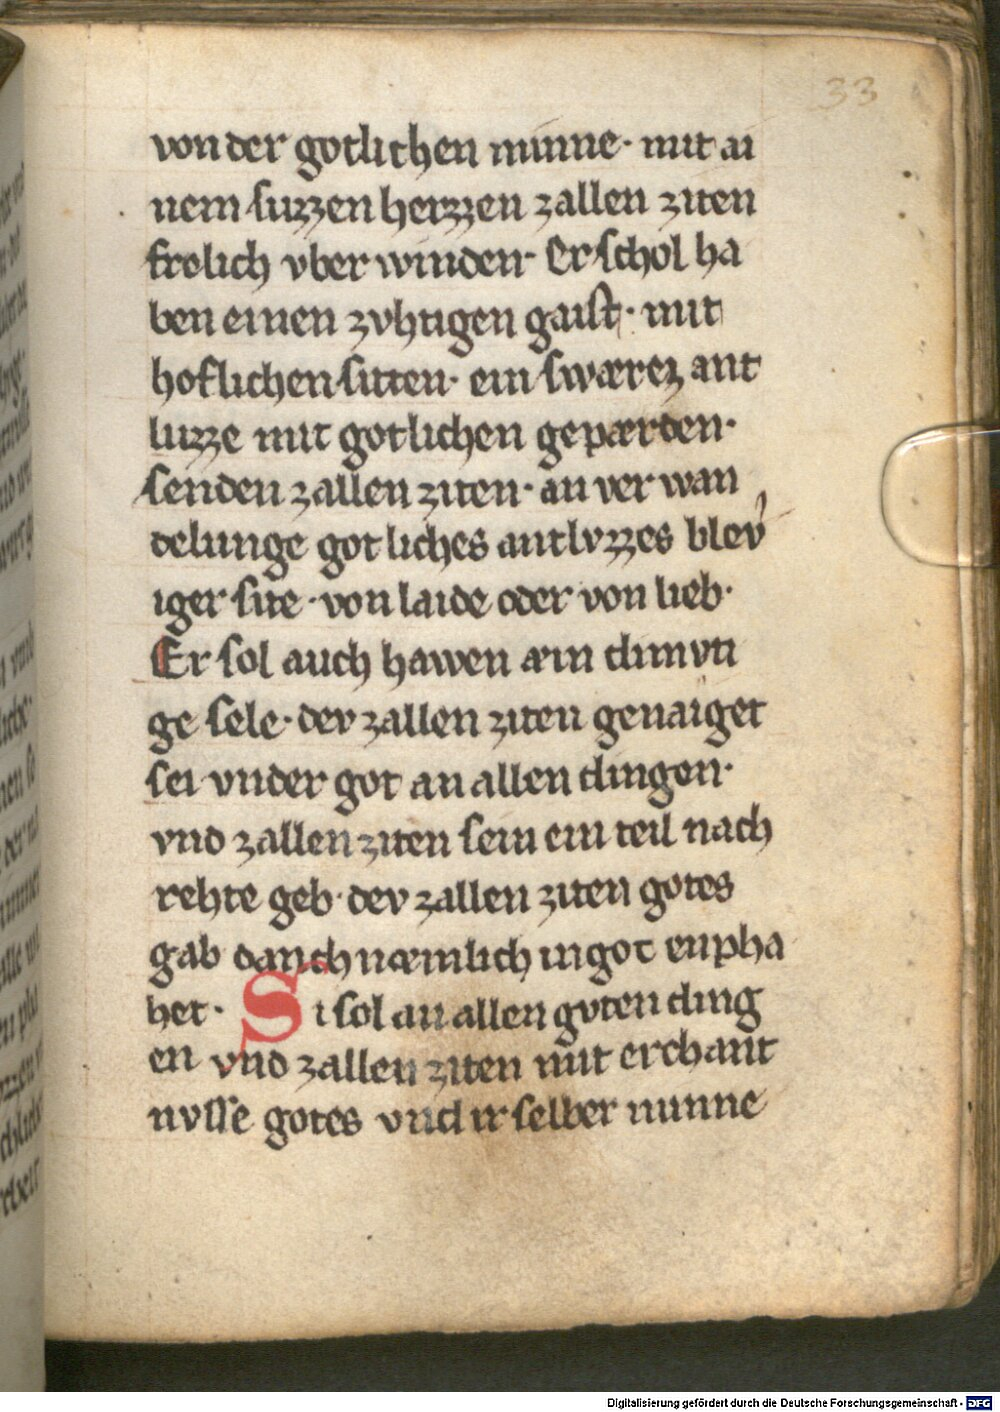 33
von der gotlichen minne · mit ai
nem suzzen herzzen zallen ziten
frolich vber winden · Er schol ha
ben einen zvhtigen gaist · mit
hoflichen sitten · ein swærez ant
luzze mit gotlichen gepærden ·
senden zallen ziten · an ver wan
delunge gotliches antlvzzes blev
iger site · von laide oder von lieb ·
Er sol auch hawen æin dimvti
ge sele · dev zallen ziten genaiget
sei vnder got an allen dingen ·
vnd zallen ziten sein ein teil nach
rehte geb · dev zallen ziten gotes
gab danchnæmlich in got enpha
het · Si sol an allen gvten ding
en vnd zallen ziten mit erchant
nvsse gotes vnd ir selber minne
Digitalisierung gefördert durch die Deutsche Forschungsgemeinschaft - DFG